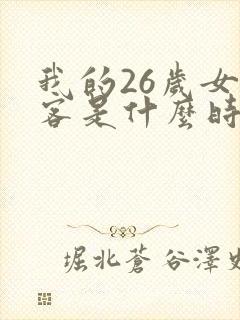 我的26歲女
客是什麼時
堀北蒼 谷澤